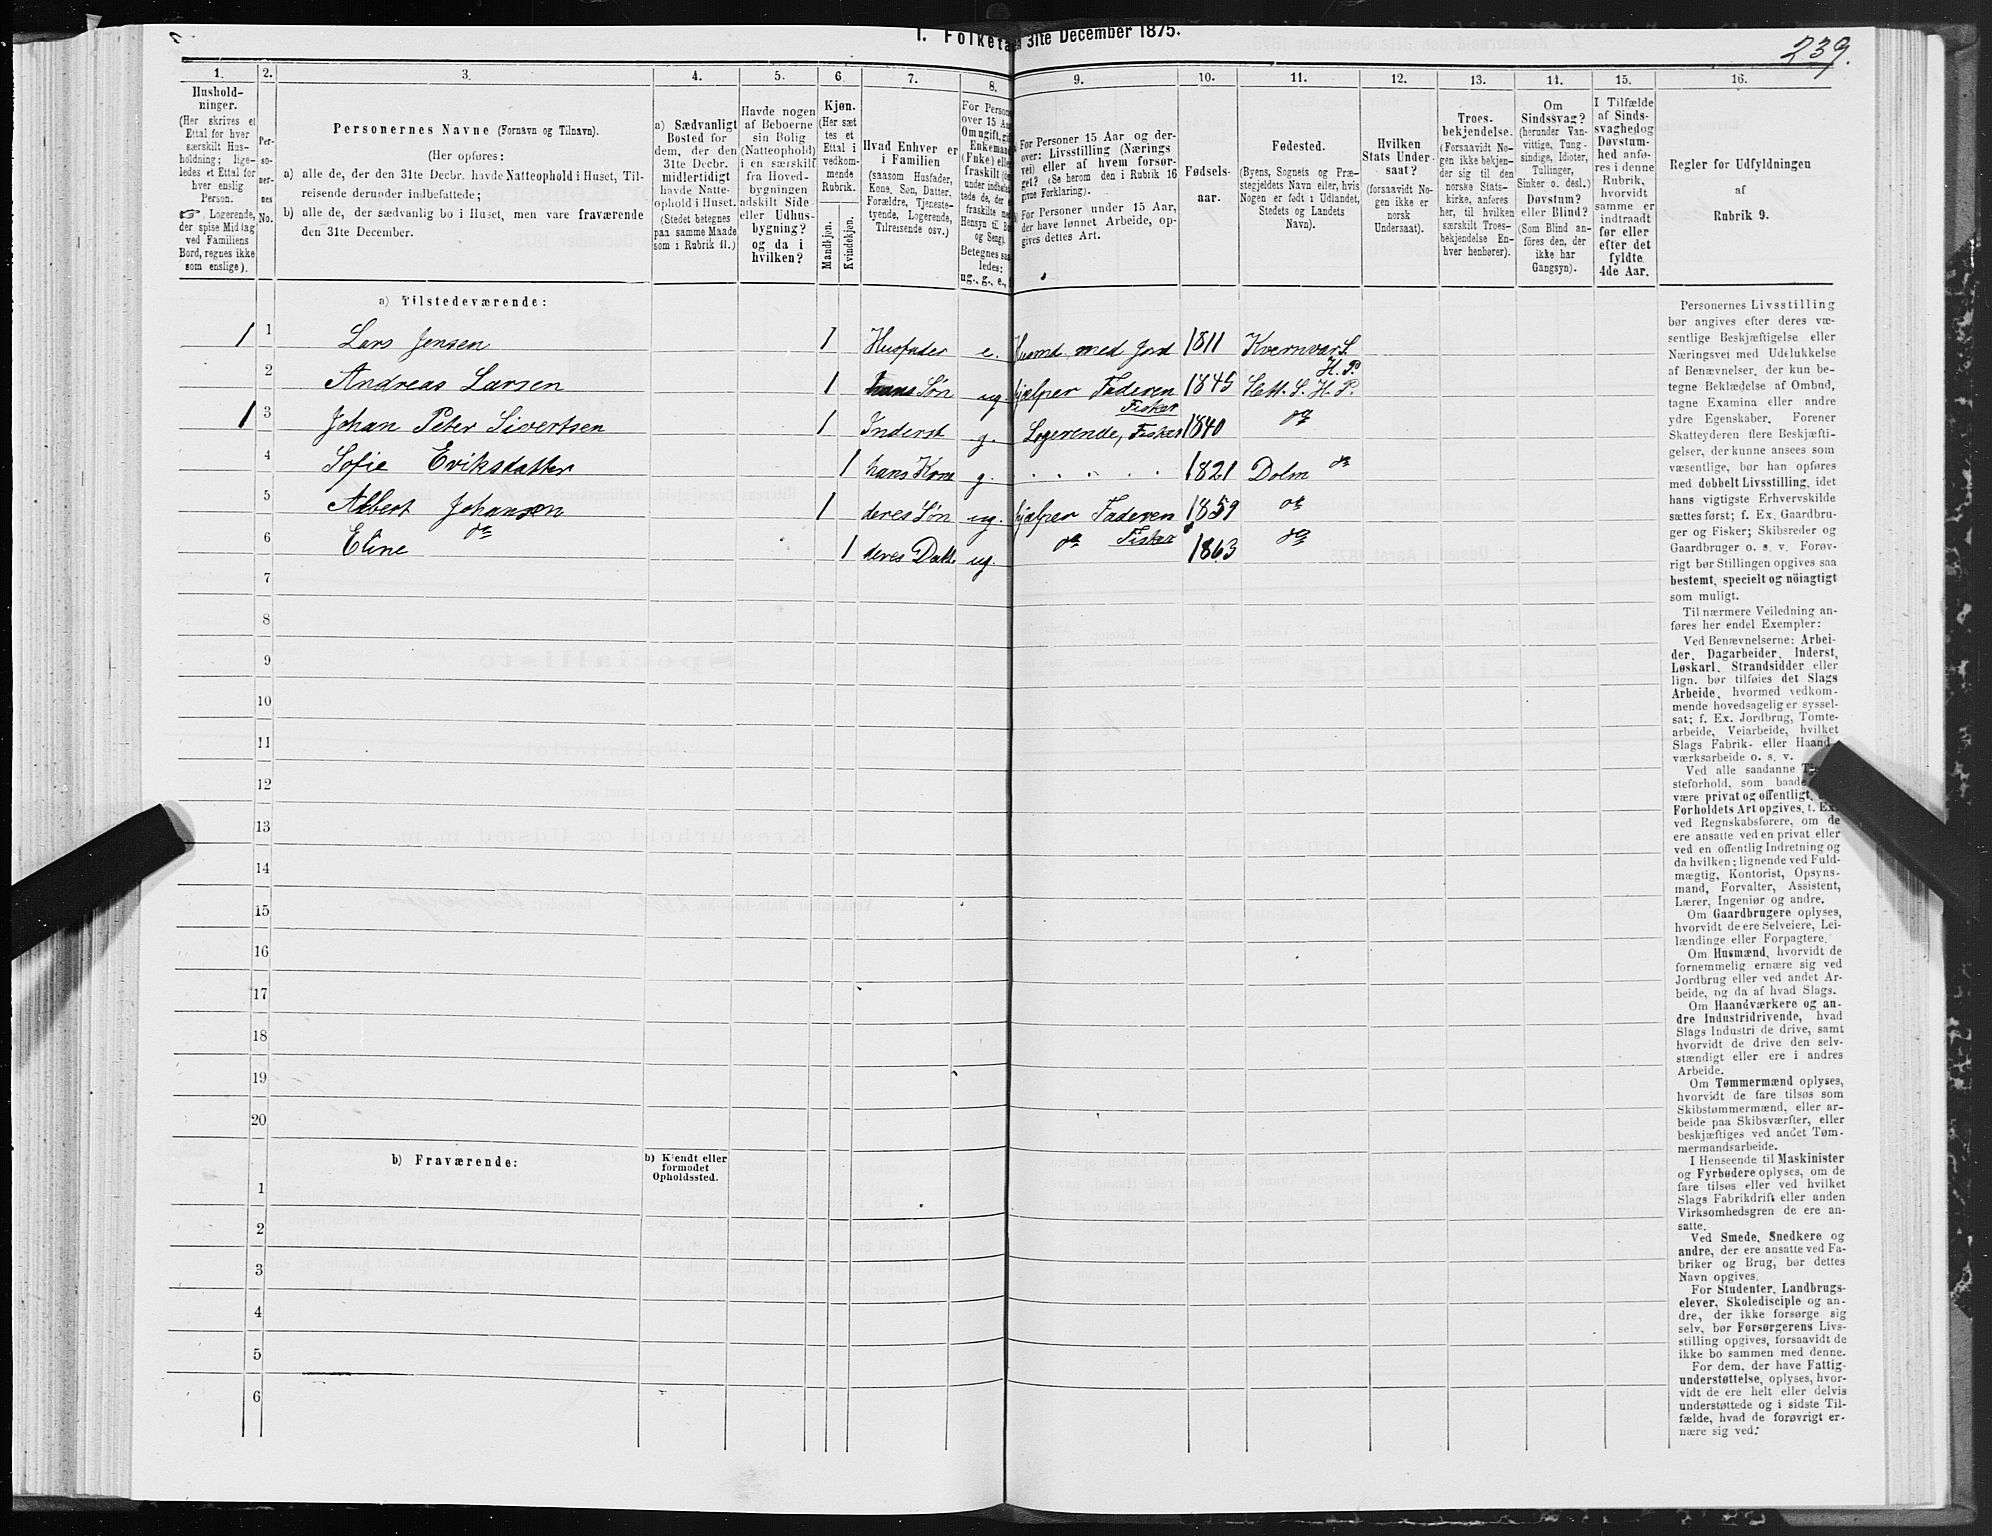 1. Folketæ 31te December 1875.
239.
1. 2. 3. 4. 5. 6 7. 8. 9. 10. 11. 12. 13. 14. 15. 16.
Hushold-
ninger.
(Her skrives et
Ettal for hver
særskilt Hus-
holdning; lige-
ledes et Ettal for
hver enslig
Person.
☞ Logerende,
der spise Middag
ved Familiens
Bord, regnes ikke
som enslige).
Per-
so-
ner-
nes
No.
Personernes Navne (Fornavn og Tilnavn).
(Her opføres:
a) alle de, der den 31te Decbr. havde Natteophold i Huset, Til-
reisende derunder indbefattede;
b) alle de, der sædvanlig bo i Huset, men vare fraværende
den 31te December.
a) Sædvanligt
Bosted for
dem, der den
31te Decbr.
midlertidigt
havde Natte-
ophold i Huset.
(Stedet betegnes
paa samme Maade
som i Rubrik 11.)
Havde nogen
af Beboerne
sin Bolig
(Natteophold)
i en særskilt
fra Hoved-
bygningen
adskilt Side
eller Udhus-
bygning?
og da i
hvilken?
Kjøn.
(Her sæt
tes et
Ettal i
vedkom-
mende
Rubrik.
Mandkjøn.
Kvindekjøn.
Hvad Enhver er
i Familien
(saasom Husfader,
Kone, Søn, Datter,
Forældre, Tjeneste-
tyende, Logerende,
Tilreisende osv.)
For Person
over 15 Aa
Om ugift, gi
Enkeman
(Enke) elle
fraskilt
under indbe
tede de, de
fraskilte
Hensyn til B
og Seng).
Betegnes sa
ledes:
ug., g., e.,
For Personer 15 Aar og der-
over: Livsstilling (Nærings
vei) eller af hvem forsør-
get? (Se herom den i Rubrik 16
givne Forklaring).
For Personer under 15 Aar,
der have lønnet Arbeide, op-
gives dettes Art.
Fødsels-
aar.
Fødested.
(Byens, Sognets og Præ-
stegjeldets Navn eller, hvis
Nogen er født i Udlandet,
Stedets og Landets
Navn).
Hvilken
Stats Under-
saat?
(forsaavidt No-
gen ikke er
norsk
Undersaat).
Troes-
bekjendelse.
(Forsaavidt No-
gen ikke bekjen-
der sig til den
norske Stats-
kirke, anføres
her, til hvilken
særskilt Troes-
bekjendelse En-
hver henhører).
Om
Sindssvag?
(herunder Van-
vittige, Tung-
sindige, Idioter,
Tullinger,
Sinker o. desl.)
Døvstum?
eller Blind?
(Som Blind an-
føres den, der
ikke har
Gangsyn).
I Tilfælde
af Sinds-
svaghed og
Døvstum-
hed anfø-
res i denne
Rubrik,
hvorvidt
samme er
indtraadt
før eller
efter det
fyldte
4de Aar.
Regler for Udfyldningen
af
Rubrik 9.
a) Tilstedeværende:
1 1 Lars Jensen 1 Husfader e. Husmd med Jord 1811 Kvernvær S.
H. P.
2 Andreas Larsen 1 hans Søn ug. hjælper Faderen 1845 Hitt. S. H. P.
Fisker
1 3 Johan Peter Sivertsen 1 Inderst g. Logerende, Fisker 1840 do
4 Sofie Eriksdatter 1 hans Kone g. 1821 Dolm do
5 Albert Johansen 1 deres Søn ug. hjælper Faderen 1859 do
Fisker
6 Eline do 1 deres Datt. ug. do 1863 do
7
8
9
10
11
12
13
14
15
16
17
18
19
20
b) Fraværende:
b) Kjendt eller
formodet
Opholdssted.
1
2
3
4
5
6
Personernes Livsstilling
bør angives efter deres væ-
sentlige Beskjæftigelse eller
Næringsvei med Udelukkelse
af Benævnelser, der kun be-
tegne Beklædelse af Ombud,
tagne Examina eller andre
ydre Egenskaber. Forener
Skatteyderen flere Beskjæfti-
gelser, der kunne ansees som
væsentlige, bør han opføres
med dobbelt Livsstilling, idet
hans vigtigste Erhvervskilde
sættes først; f. Ex. Gaardbru-
ger og Fisker; Skibsreder og
Gaardbruger o. s. v. Forøv-
rigt bør Stillingen opgives saa
bestemt, specielt og nöiagtigt
som muligt.
Til nærmere Veiledning an-
føres her endel Exempler:
Ved Benævnelserne: Arbei-
der, Dagarbeider, Inderst,
Løskarl, Strandsidder eller
lign. bør tilføies det Slags
Arbeide, hvormed vedkom-
mende hovedsagelig er syssel-
sat; f. Ex. Jordbrug, Tomte-
arbeide, Veiarbeide, hvilket
Slags Fabrik- eller Haand-
værksarbeide o. s. v.
Ved alle saadanne
steforhold, som baade
være privat og offentligt,
Forholdets Art opgives, t. Ex.
ved Regnskabsførere, om de
ere ansatte ved en privat eller
ved en offentlig Indretning og
da hvilken; lignende ved Fuld-
mægtig, Kontorist, Opsyns-
mand, Forvalter, Assistent,
Lærer, Ingeniør og andre.
Om Gaardbrugere oplyses,
hvorvidt de ere Selveiere, Lei-
lændinge eller Forpagtere.
Om Husmænd, hvorvidt de
fornemmelig ernære sig ved
Jordbrug eller ved andet Ar-
beide, og da af hvad Slags.
Om Haandværkere og an-
dre Industridrivende, hvad
Slags Industri de drive, samt
hvorvidt de drive den selv-
stændigt eller ere i andres
Arbeide.
Om Tømmermænd oplyses,
hvorvidt de fare tilsøs som
Skibstømmermænd, eller ar-
beide paa Skibsværfter, eller
beskjæftiges ved andet Tøm-
mermandsarbeide.
I Henseende til Maskinister
og Fyrbødere oplyses, om de
fare tilsøs eller ved hvilket
Slags Fabrikdrift eller anden
Virksomhedsgren de ere an-
satte.
Ved Smede, Snedkere og
andre, der ere ansatte ved Fa-
briker og Brug, bør dettes
Navn opgives.
For Studenter, Landbrugs-
elever, Skoledisciple og an-
dre, der ikke forsørge sig
selv, bør Forsørgerens Livs-
stilling opgives, forsaavidt de
ikke bo sammen med denne.
For dem, der have Fattig-
understøttelse, oplyses, hvor-
vidt de ere helt eller delvis
understøttede og i sidste Til-
fælde, hvad de forøvrigt er-
nære sig ved.